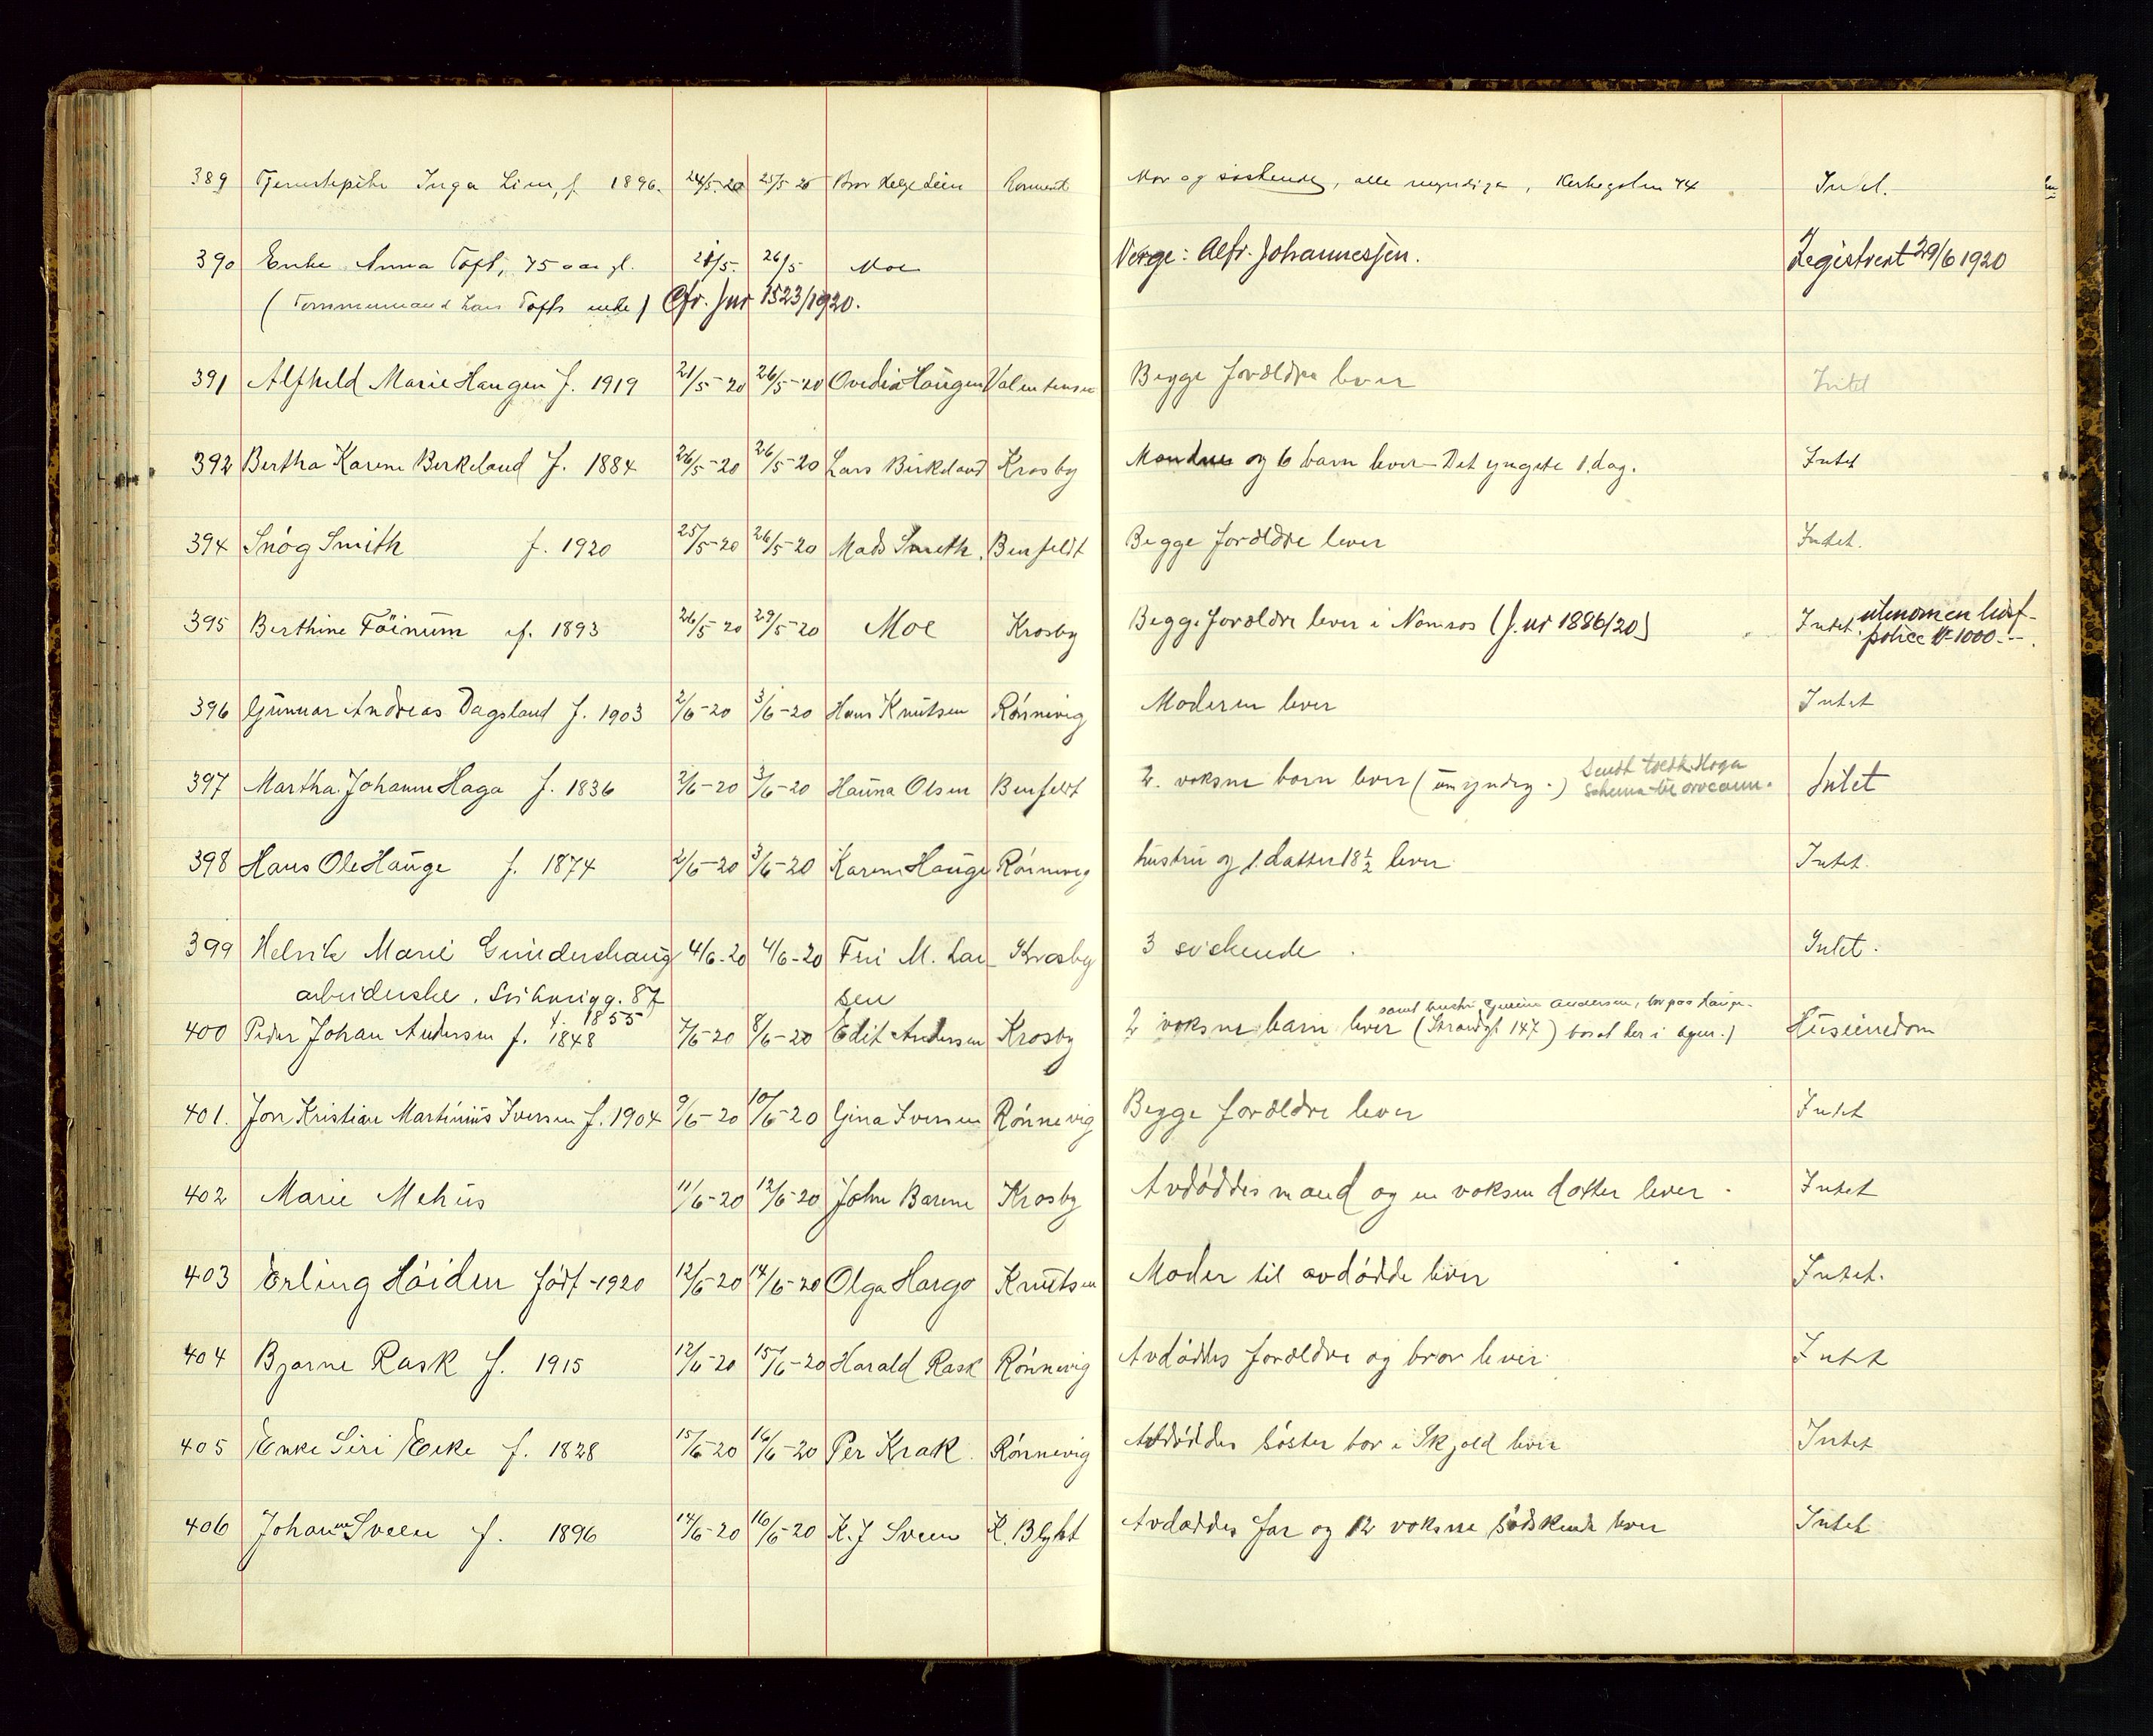 389 Tjenestepike Inga Lien, f. 1896. 24/5-20 25/5-20 Bror Helge Lien Mor og søskende, alle myndige, Kirkegaten 74 Intet.
390 Enke Anna Toft, 75 aar gl. 21/5. 26/5 Moe Verge: Alfr. Johannessen. Registrert 29/6 1920
(Tømmermand Lars Tofts enke) Cfr. J nr 1523/1920.
391 Alfhild Marie Haugen f. 1919 21/5-20 26/5-20 Ovedia Haugen Valentinsen Begge forældre lever Intet
392 Bertha Karine Birkeland f. 1884 26/5-20 26/5-20 Lars Birkeland Krosby Manden og 6 barn lever - Det yngste 1. dag. Intet
394 Snóg Smith f. 1920 25/5-20 26/5-20 Mads Smith. Benfeldt Begge forældre lever Intet.
395 Berthine Föinum f. 1893 26/5-20 29/5-20 Moe Krosby Begge forældre lever i Namsos (J. nr 1886/20) Intet. utenom en livsf-
police kr 1000.--.
396 Gunnar Andreas Dagsland f. 1903 2/6-20 3/6-20 Hans Knutsen Rónnevig Moderen lever Intet
397 Martha Johanne Haga f. 1836 2/6-20 3/6-20 Hanna Olsen Benfeldt 2. voksne barn lever (umyndig.) Sendt
Haga
schema til Intet
398 Hans Ole Hauge f. 1874 2/6-20 3/6-20 Karen Hauge Rónnevig hustru og 1. datter 18 1/2 lever Intet.
399 Helvik Marie Gundershaug 4/6-20 4/6-20 Fru M. Lar- Krosby 3 søskende. Intet.
arbeiderske. 87 sen
f. 1855 samt hustru Andersen, bor paa Hauge-
400 Peder Johan Andersen f. 1848 7/6-20 8/6-20 Edit Andersen Krosby 2 voksne barn lever (Strandgt 147) bosat her i byen.) Huseiendom
401. Jon Kristian Martinius Iversen f. 1904 9/6-20 10/6-20 Gina Iversen Rónnevig Begge forældre lever Intet
402 Marie Mehus 11/6-20 12/6-20 John Barene Krosby Avdóddes mand og en voksen datter lever. Intet
403 Erling Hóiden født-1920 12/6-20 14/6-20 Olga Hargo Knutsen Moder til avdódde lever Intet.
404 Bjarne Rask f. 1915 12/6-20 15/6-20 Harald Rask Rónnevig Avdóddes forældre og bror lever Intet
405 Enke Siri Erke f. 1828 15/6-20 16/6-20 Per Krak. Rónnevig Avdóddes sóster bor i Skjold lever Intet
406 Johanne Sveen f. 1896 14/6-20 16/6-20 K. J Sveen K. Blyht Avdøddes far og 12 voksne sødskende lever Intet